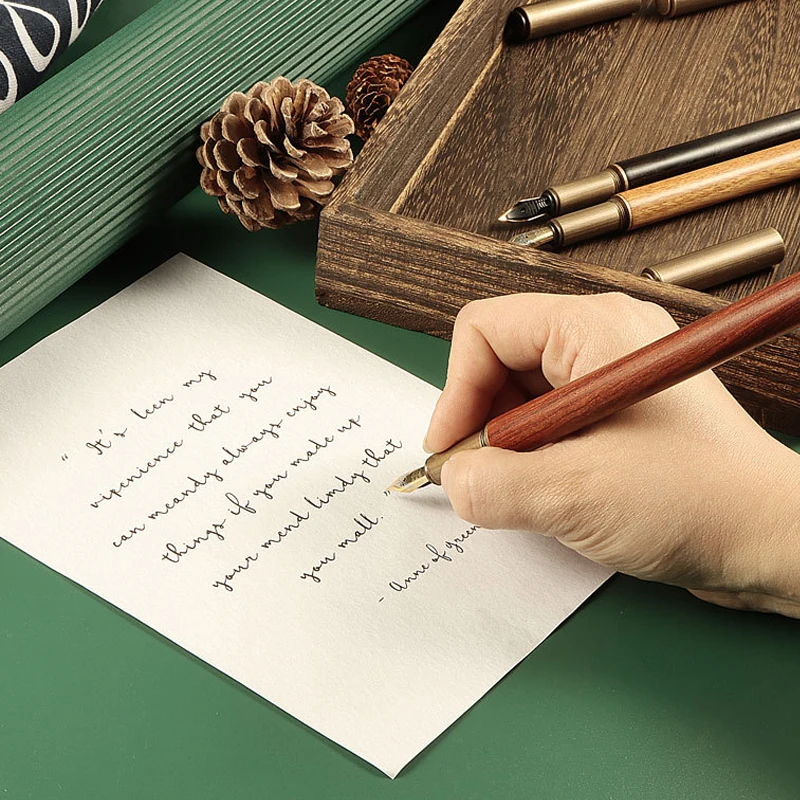 " It's been my
vipenience that you
can meandy always enjoy
things if you made up
your mend limdy that
you mall. "
- Anne of green